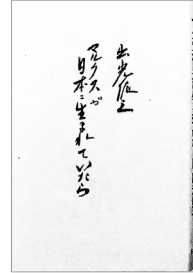 出光佐三
マルクスが
日本に生れていたら